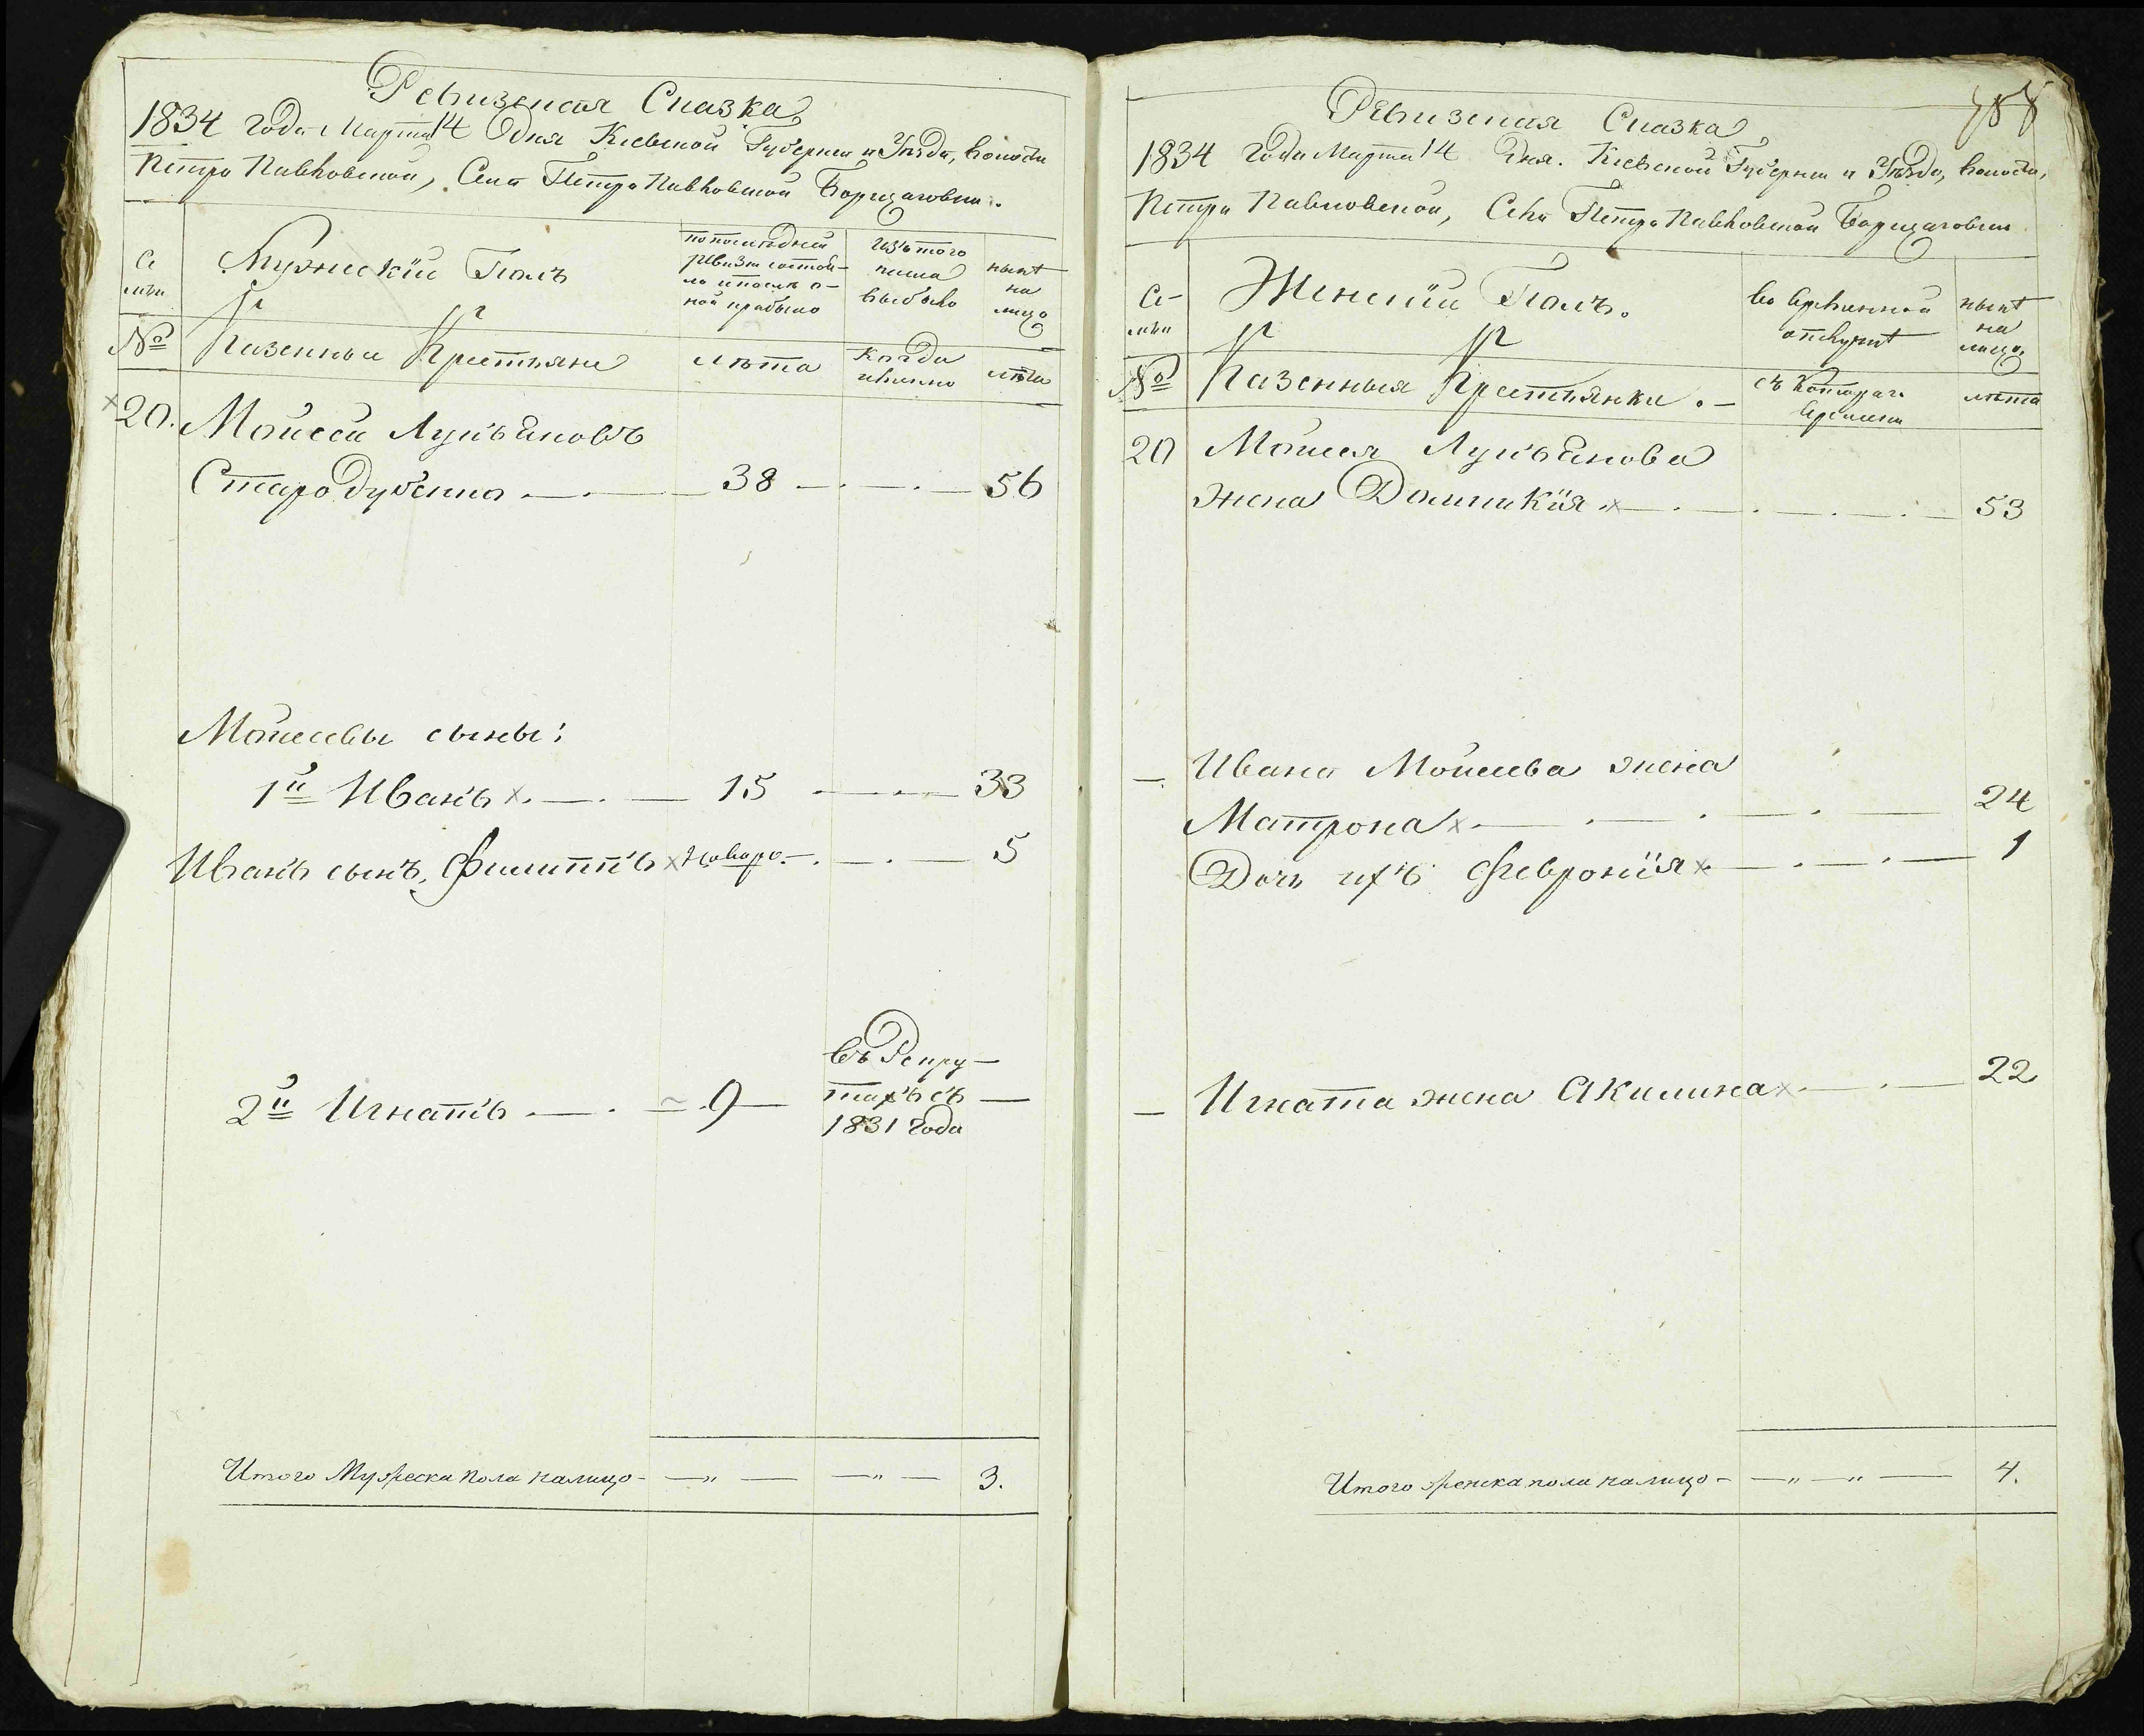 Ревизская Сказка
1834 года Марта 14 дня Киевской Губернии и Уѣзда, волости
Петро Павловской, Села Петро Павловской Борщаговки.
Се
мьи
Мужескій Полъ
по последней
ревизіи состоя-
ло и после о-
ной прибыло
Изъ того
числа
выбыло
нынѣ
на
лицо
№
Казенныи Крестьяне
лѣта
когда
имянно
лѣта
20. Моисей Лукъяновъ
Стародубенко 38 56
Моисеевы сыны:
1й Иванъ 15 33
Иванъ сынъ, Филиппъ новоро. 5
2й Игнатъ 9
въ Рекру-
тахъ съ
1831 года
Итого Мужеска пола налицо 3.
Ревизская Сказка
1834 года Марта 14 дня. Киевской Губернии и Уѣзда, волости,
Петро Павловской, Села Петро Павловской Борщаговки
Се-
мьи
Женскій Полъ.
во временной
отлучкѣ
нынѣ
на
лицо.
№
Казенныя Крестьянки.
съ котораго
времени
лѣта
20 Моисея Лукъянова
жена Домникія 53
Ивана Моисеева жена
Матрона 24
Дочь ихъ Февронія 1
Игната жена Акилина 22
Итого женска пола налицо 4.